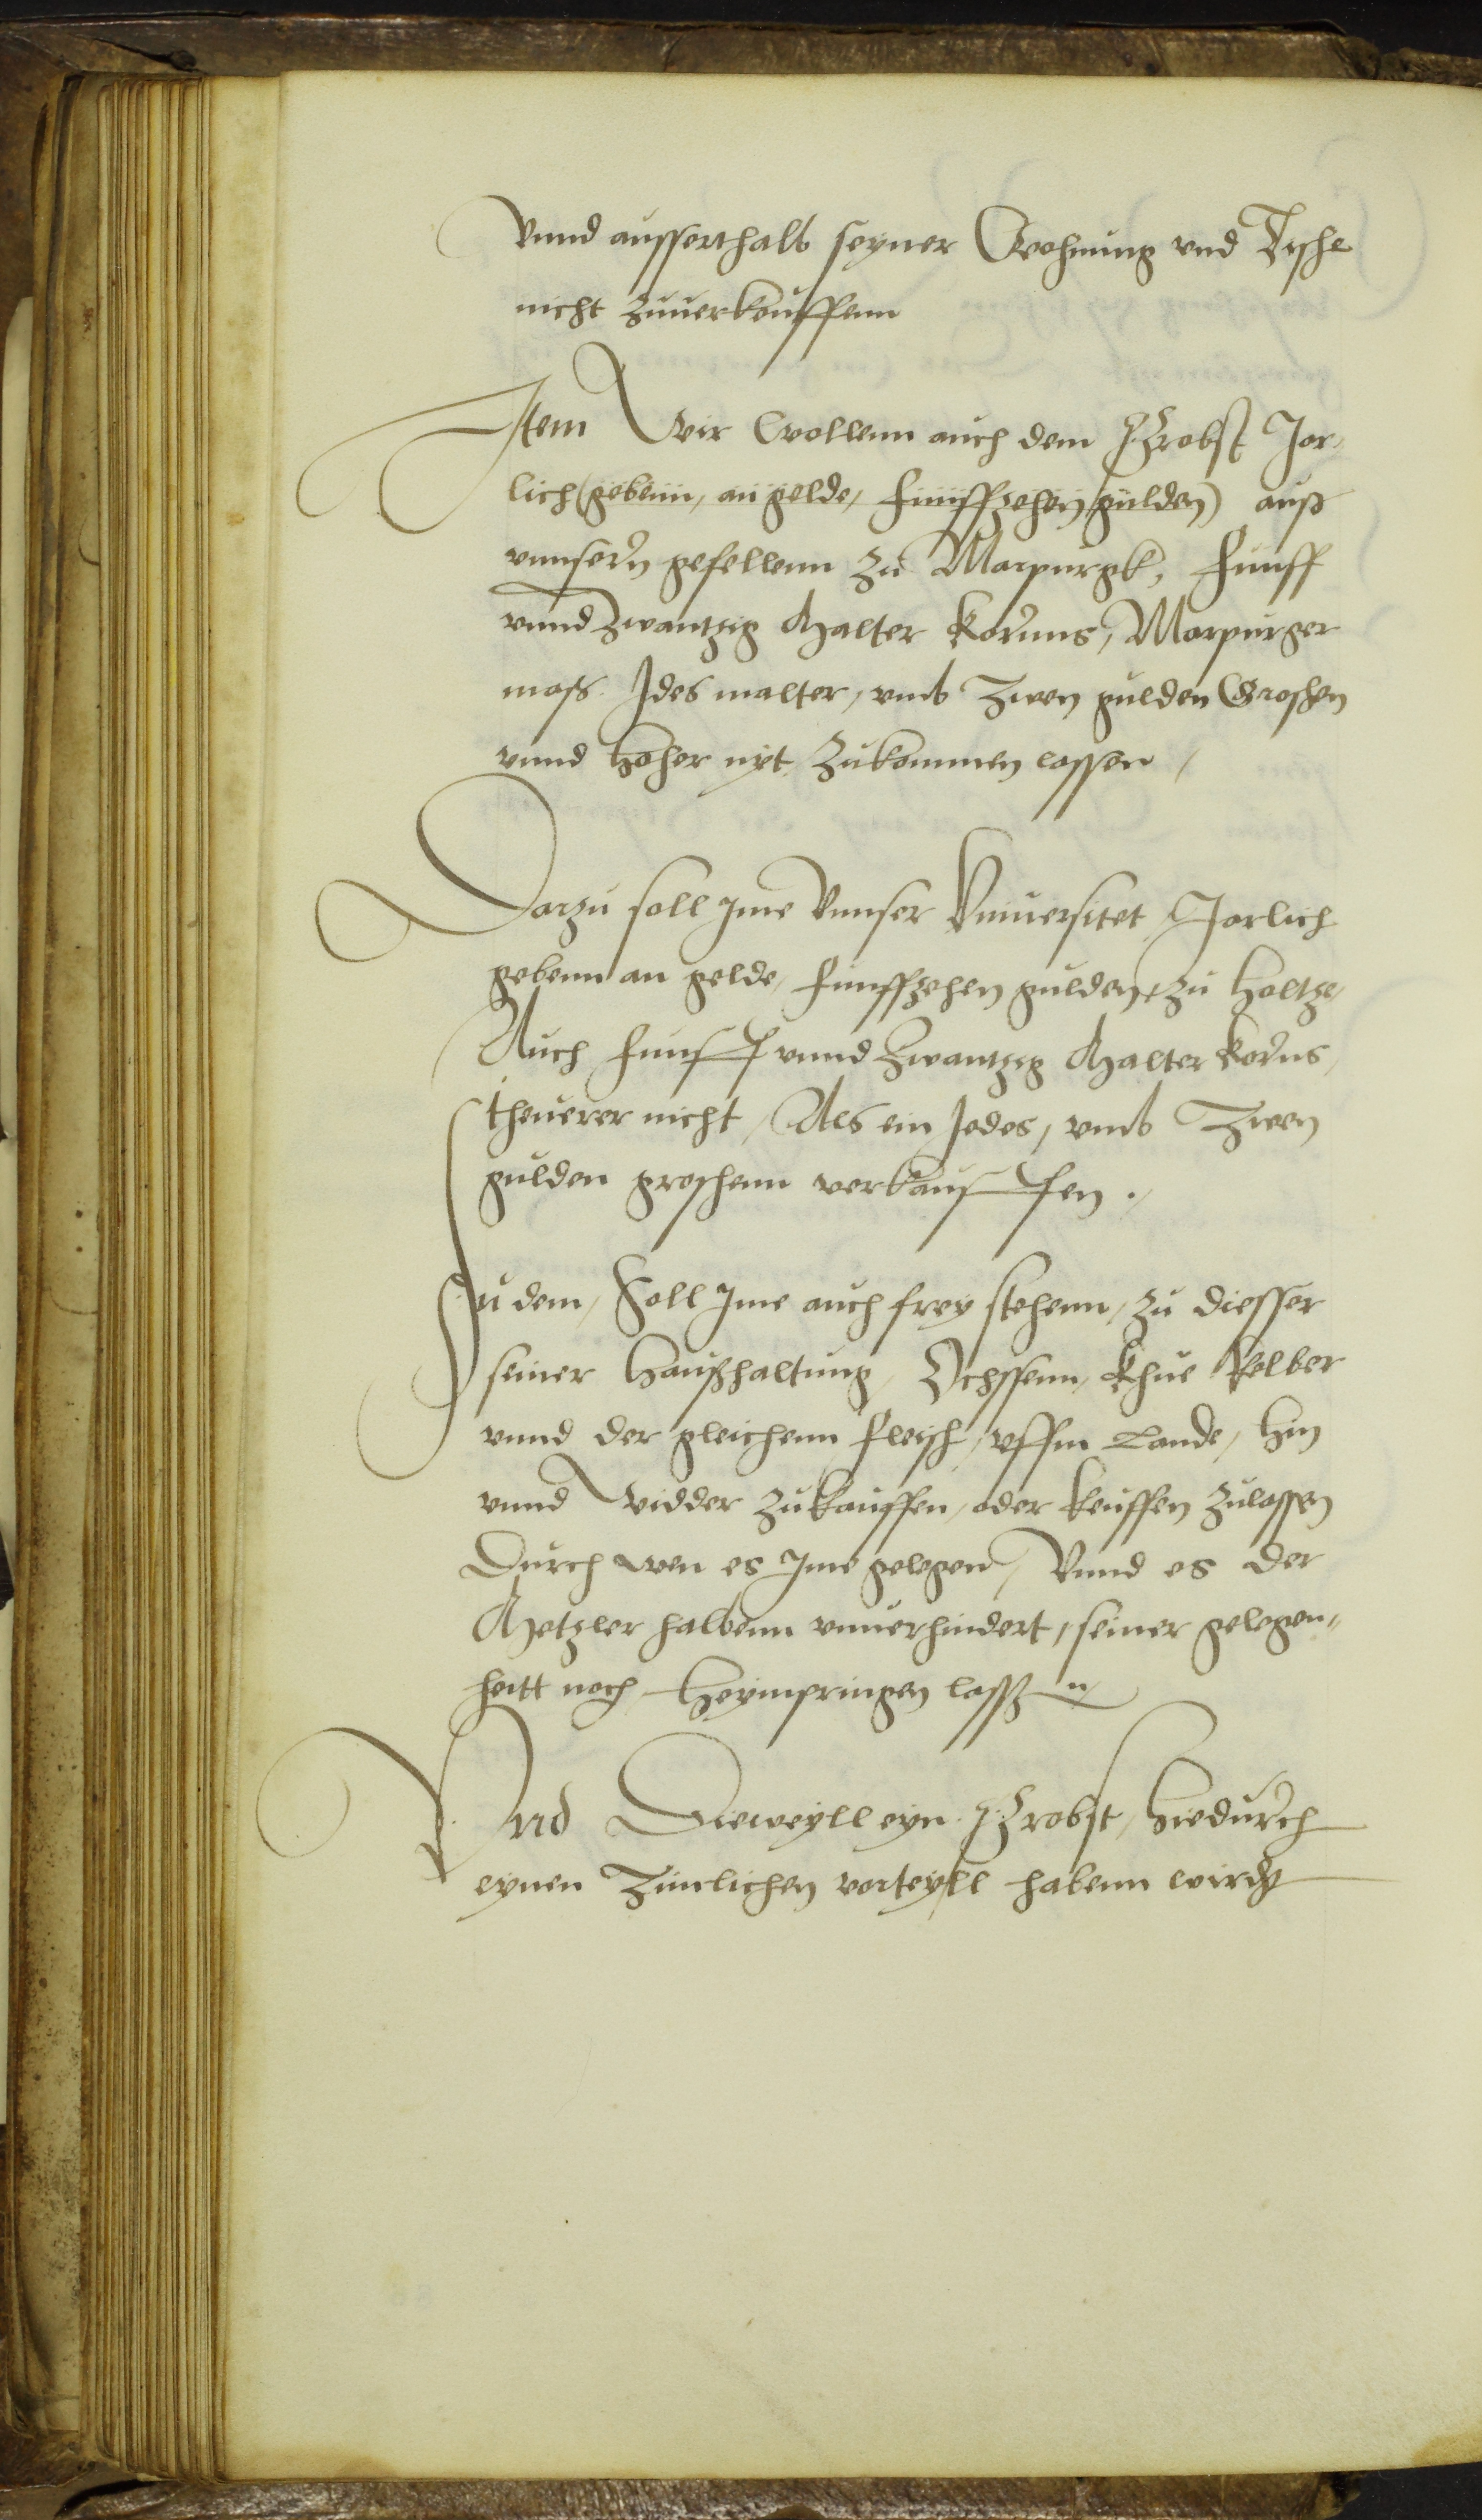 Vnnd ausserthalb seyner Wohnung vnd Tische
nicht zuuerkouffenn
Jtem Wir Wollenn auch dem Probst Jor,
lich (gebenn, an gelde, funffzehen gulden) auß
vnnsern gefellenn zu Marpurgk, funff
vnnd zwantzig Malter Kornns, Marpurger
mass Jdes malter, vmb Zwen gulden Groschen
vnnd hoher nyt zukommen lassen,
Darzu soll jme Vnnser Vniuersitet Jorlich
gebenn an gelde, funffzehen gulden, zu holtze,
Auch funff vnnd zwantzig Malter korns,
theuerer nicht, Als ein Jedes, vmb Zwen
gulden groschenn verkauffen.
Zu dem, Soll jme auch frey stehenn, zu diesser
seiner haußhaltung, Ochssenn, khue kelber
vnnd der gleichenn fleisch, vffm Lande, hin
vnnd widder zukauffen, oder keuffen zulassen
Durch wen es jme gelegen, Vnnd es der
Metzler halbenn vnuerhindert, seiner gelegen,,
heitt noch heympringen lassen
Vnd Dieweyll eyn Probst, hiedurch
eynen Zimlichen vorteyll habenn wirdt